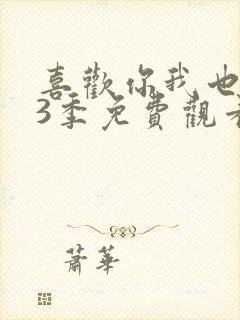 喜歡你我也
3季免費觀看
蕭華